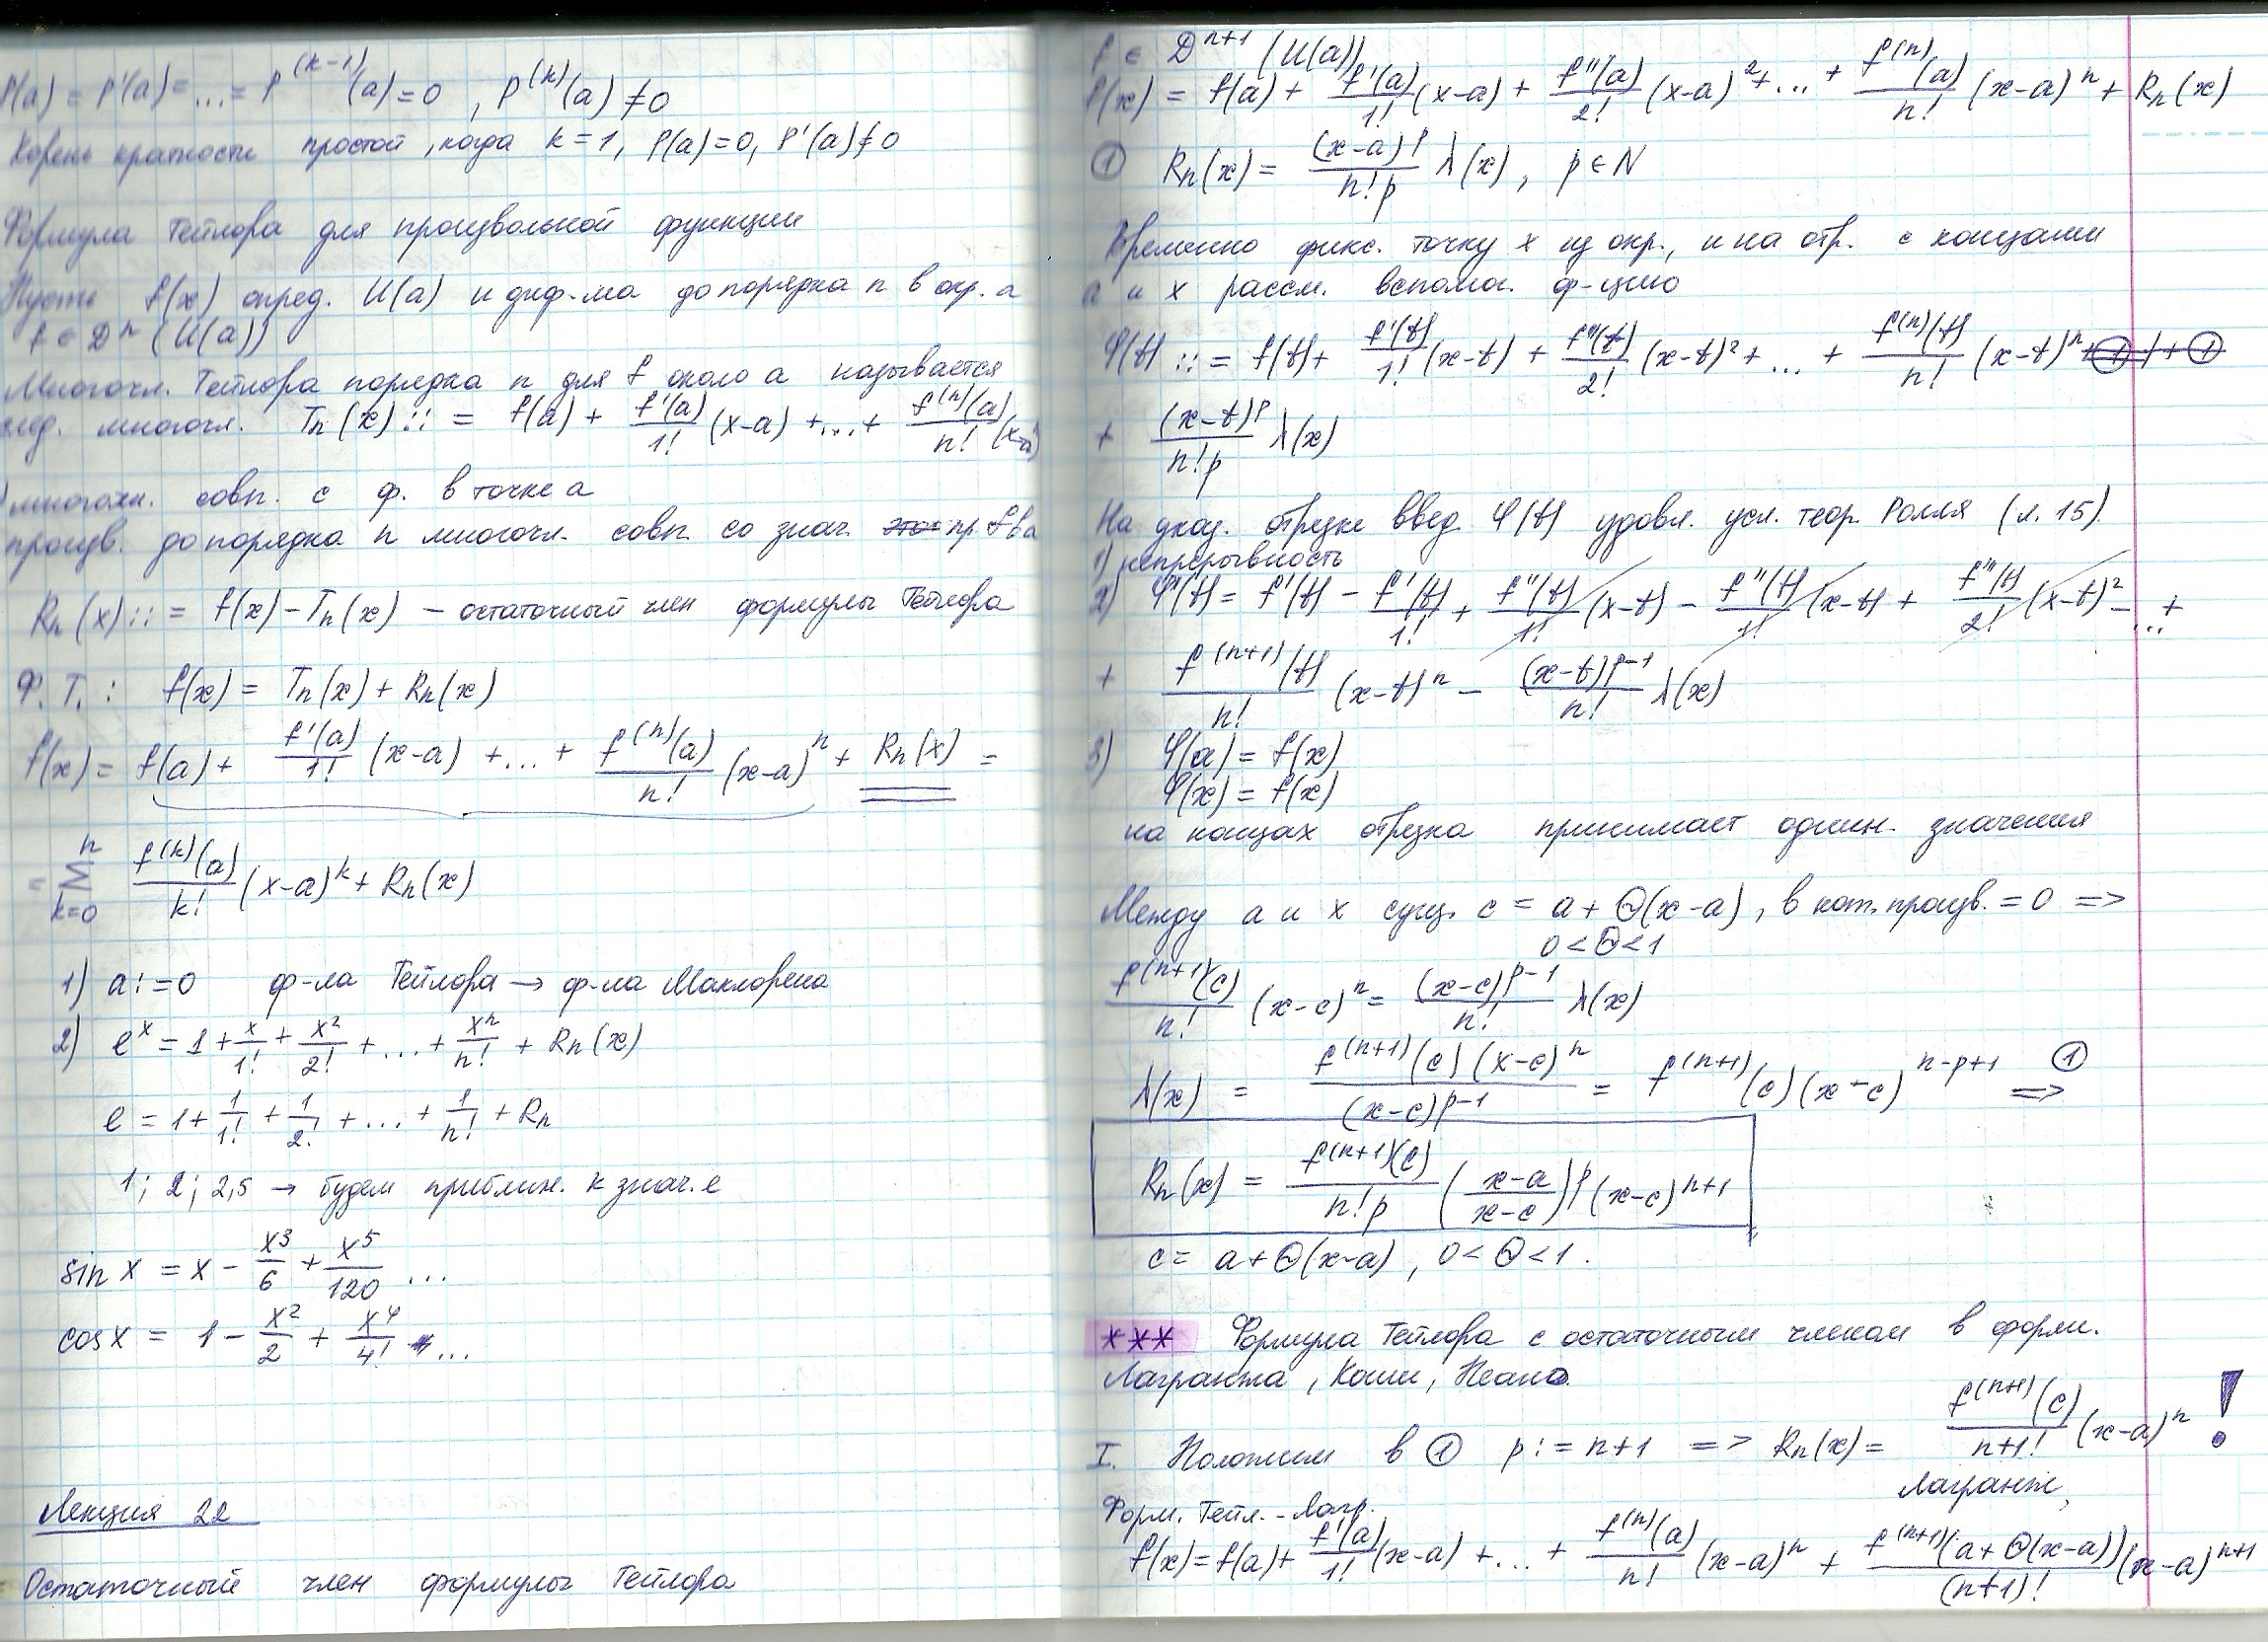 P(a) = P'(a) = ... = P^(k-1)(a) = 0 , P^(k)(a) ≠ 0
Корень кратности простой, когда k = 1, P(a) = 0, P'(a) ≠ 0
Формула Тейлора для произвольной функции
Пусть f(x) опред. U(a) и диф-ма до порядка n в окр. a
f ∈ D^n (U(a))
Многочл. Тейлора порядка n для f около a называется
след. многочл. Tn(x) ::= f(a) + f'(a)/1! (x-a) + ... + f^(n)(a)/n! (x-a)^n
многочл. совп. с ф. в точке a
произв. до порядка n многочл. совп. со знач. пр. f в a
Rn(x) ::= f(x) - Tn(x) - остаточный член формулы Тейлора
Ф. Т. : f(x) = Tn(x) + Rn(x)
f(x) = f(a) + f'(a)/1! (x-a) + ... + f^(n)(a)/n! (x-a)^n + Rn(x) =
= Σ_{k=0}^{n} f^(k)(a)/k! (x-a)^k + Rn(x)
1) a := 0 ф-ла Тейлора → ф-ла Маклорена
2) e^x = 1 + x/1! + x^2/2! + ... + x^n/n! + Rn(x)
e = 1 + 1/1! + 1/2! + ... + 1/n! + Rn
1; 2; 2,5 → будем приближ. к знач. e
sin x = x - x^3/6 + x^5/120 ...
cos x = 1 - x^2/2 + x^4/4! ...
Лекция 22
Остаточный член формулы Тейлора
f ∈ D^n+1 (U(a))
f(x) = f(a) + f'(a)/1! (x-a) + f''(a)/2! (x-a)^2 + ... + f^(n)(a)/n! (x-a)^n + Rn(x)
① Rn(x) = (x-a)^p/n!p λ(x), p ∈ N
Временно фикс. точку x из окр., и на отр. с концами
a и x рассм. вспомог. ф-цию
φ(t) ::= f(t) + f'(t)/1! (x-t) + f''(t)/2! (x-t)^2 + ... + f^(n)(t)/n! (x-t)^n
+ (x-t)^p/n!p λ(x)
На указ. отрезке введ. φ(t) удовл. усл. теор. Ролля (л. 15).
1) непрерывность
2) φ'(t) = f'(t) - f'(t)/1! + f''(t)/1! (x-t) - f''(t)/1! (x-t) + f'''(t)/2! (x-t)^2 - ... +
+ f^(n+1)(t)/n! (x-t)^n - (x-t)^p-1/n! λ(x)
3) φ(a) = f(x)
φ(x) = f(x)
на концах отрезка принимает один. значения
Между a и x сущ. c = a + Θ(x-a), в кот. произв. = 0 =>
0 < Θ < 1
f^(n+1)(c)/n! (x-c)^n = (x-c)^p-1/n! λ(x)
λ(x) = f^(n+1)(c)(x-c)^n/(x-c)^p-1 = f^(n+1)(c)(x-c)^n-p+1 ① =>
Rn(x) = f^(n+1)(c)/n!p ((x-a)/(x-c))^p (x-c)^n+1
c = a + Θ(x-a), 0 < Θ < 1.
*** Формула Тейлора с остаточным членом в форм.
Лагранжа, Коши, Пеано.
I. Положим в ① p := n+1 => Rn(x) = f^(n+1)(c)/n+1! (x-a)^n !
Лагранж
Форм. Тейл. - Лагр.
f(x) = f(a) + f'(a)/1! (x-a) + ... + f^(n)(a)/n! (x-a)^n + f^(n+1)(a + Θ(x-a))/(n+1)! (x-a)^n+1